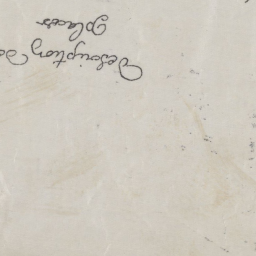 Description
places